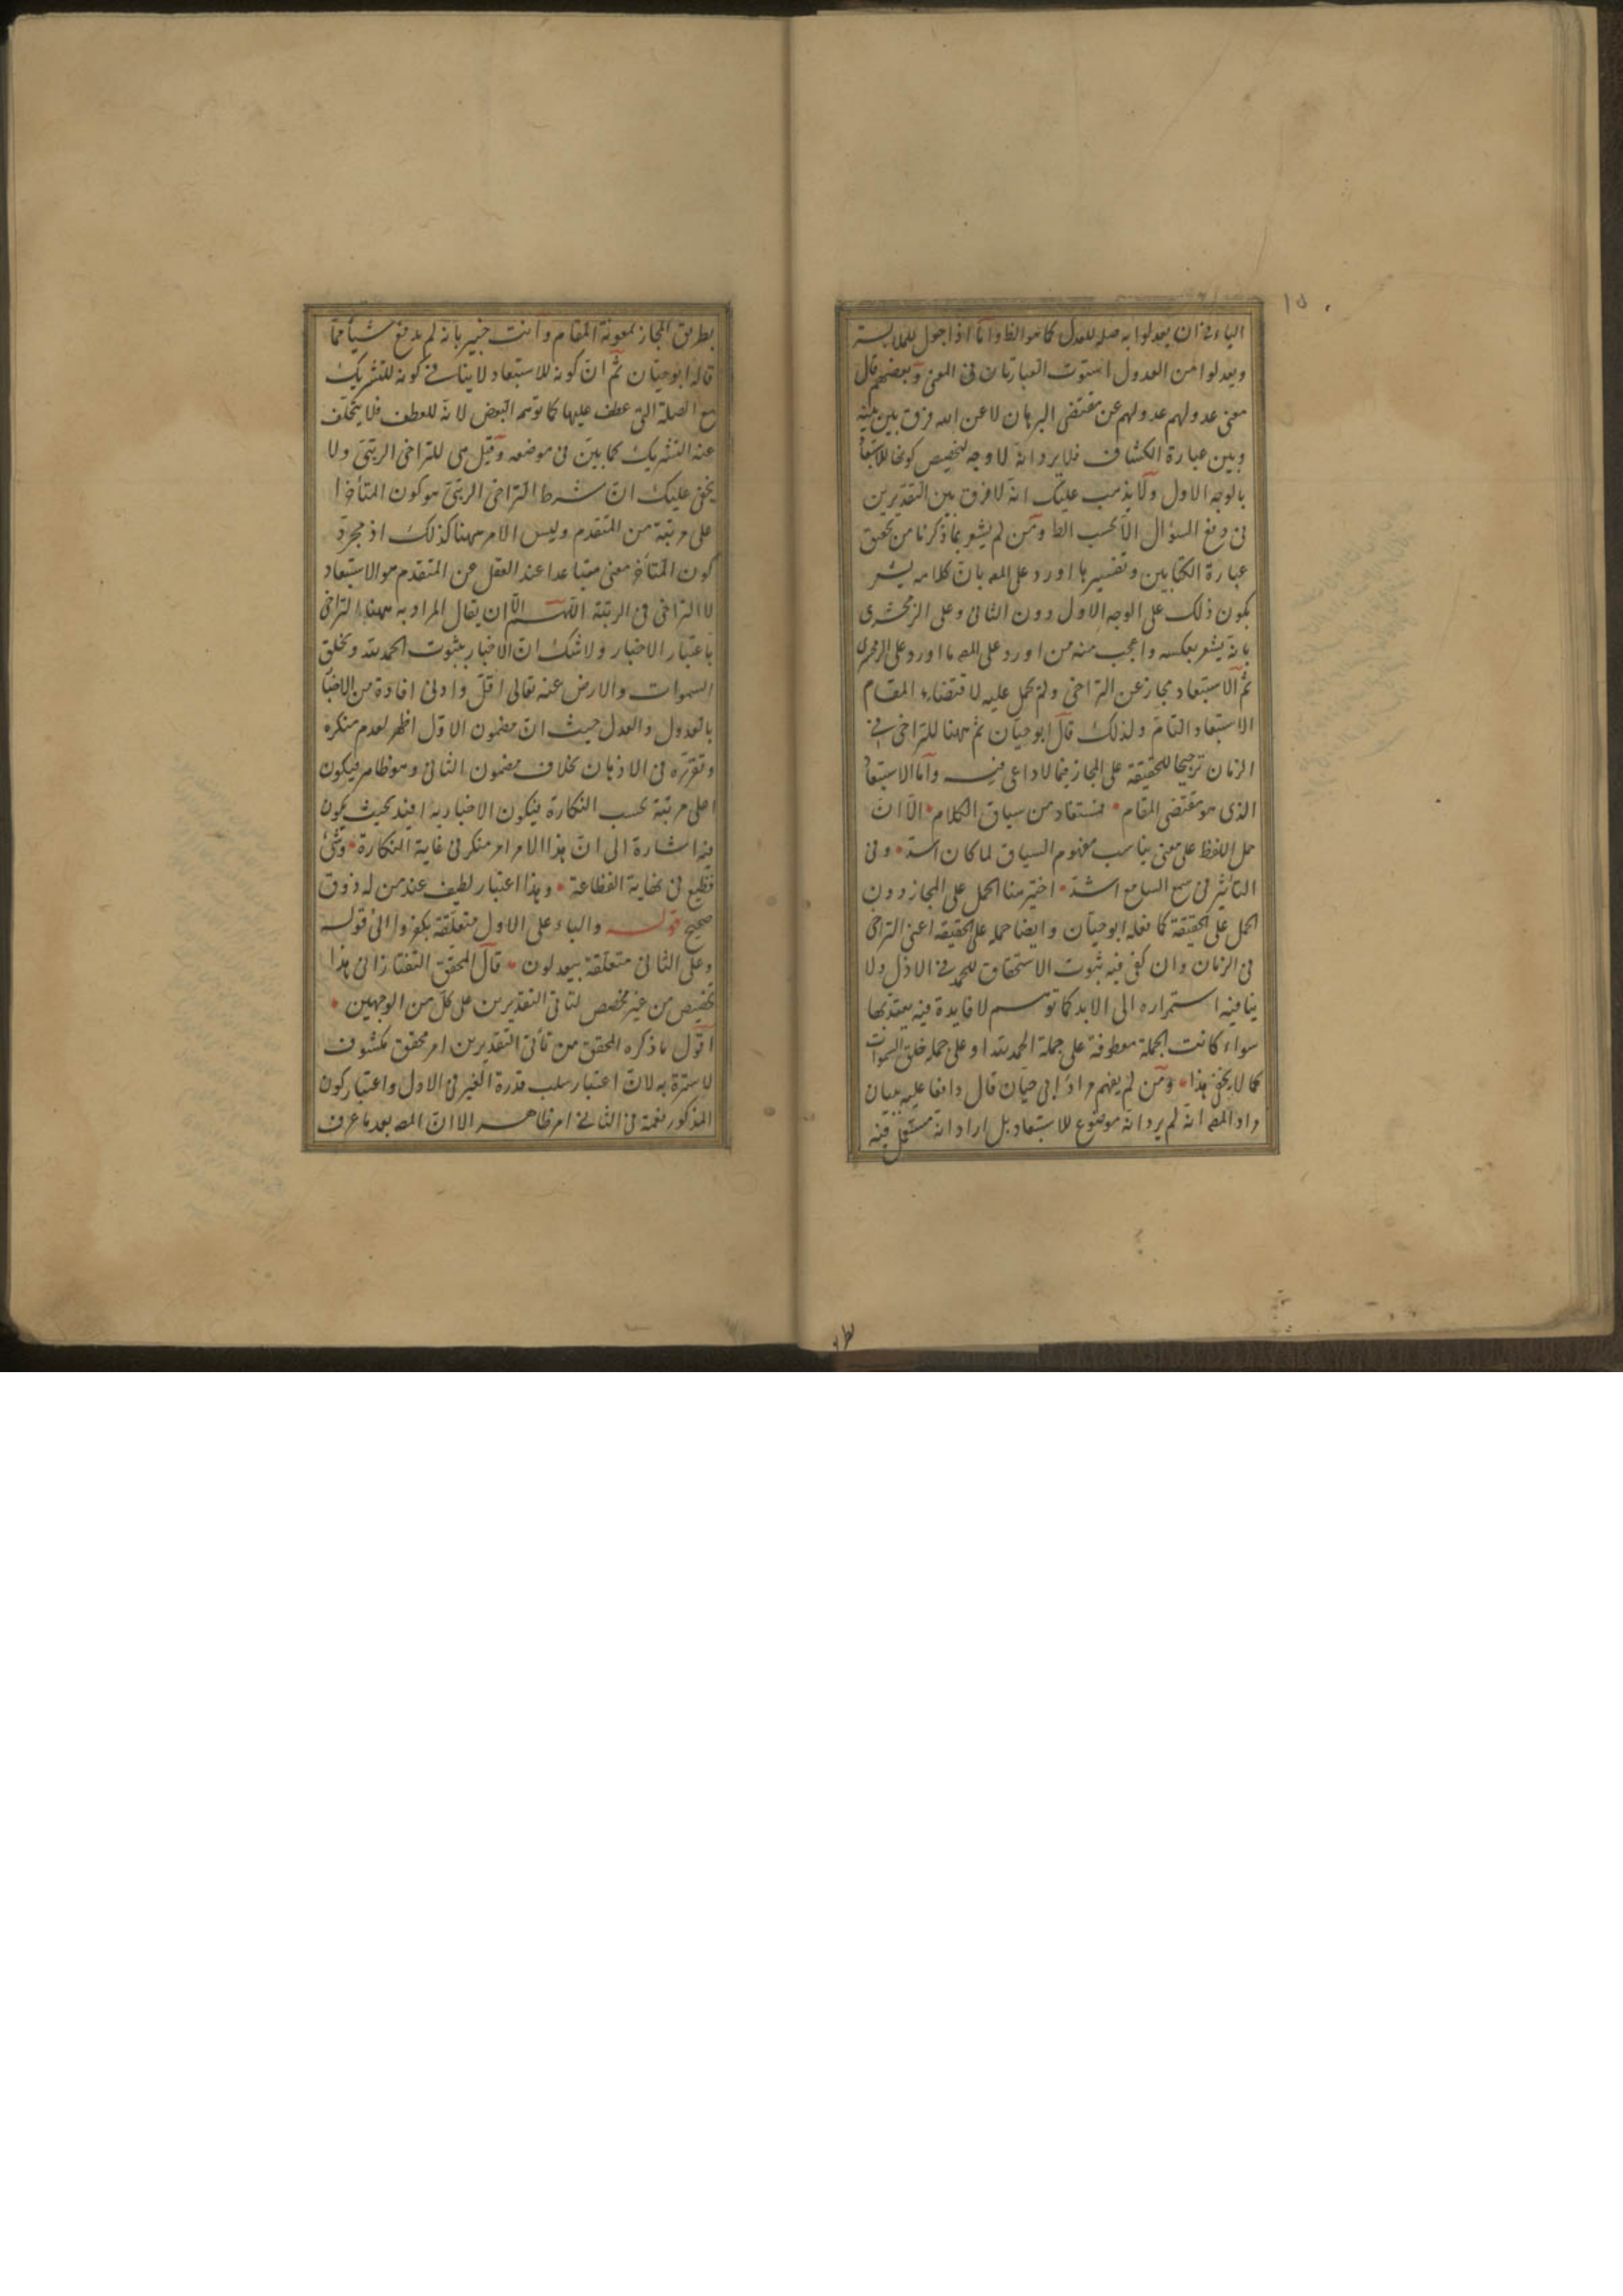 الباء في ان يعدلوا به صلة للعدل كما هو الظ واما اذا جعل للملابسة
ويعدلوا من العدول استوت العبارتان فى المعنى وبعضهم قال
معنى عدولهم عدولهم عن مقتضى البرهان لا عن الله فرق بين بينه
وبين عبارة الكشاف فلا يرد انه لا وجه لتخصيص كونها للاستبعاد
بالوجه الاول ولا يذهب عليك انه لا فرق بين التقديرين
فى دفع السؤال الا بحسب الظ ومن لم يشعر بما ذكرنا من تحقيق
عبارة الكتابين وتفسيرها اورد على المصـ بان كلامه يشعر
بكون ذلك على الوجه الاول دون الثانى وعلى الزمخشرى
بانه يشعر بعكسه واعجب منه من اورد على المصـ ما اورد على الزمخشرى
ثم الاستبعاد مجاز عن التراخى ولم يحمل عليه لاقتضاء المقام
الاستبعاد التام ولذلك قال ابو حيان ثم ههنا للتراخى فى
الزمان ترجيحا للحقيقة على المجاز فيما لا داعى فيه واما الاستبعاد
الذى هو مقتضى المقام • فمستفاد من سياق الكلام • الا ان
حمل اللفظ على معنى يناسب مفهوم السياق لما كان اشد • وفى
التأثير فى سمع السامع اشد • اختير هنا الحمل على المجاز دون
الحمل على الحقيقة كما فعله ابو حيان وايضا حمله على الحقيقة اعنى التراخى
فى الزمان وان كفى فيه ثبوت الاستحقاق للحمد فى الازل ولا
ينافيه استمراره الى الابد كما توهم لا فايدة فيه يعتد بها
سواء كانت الجملة معطوفة على جملة الحمد لله او على جملة خلق السموات
كما لا يخفى هذا • ومن لم يفهم مراد ابى حيان قال دافعا عليه ببيان
مراد المصـ انه لم يرد انه موضوع للاستبعاد بل اراد انه مستعمل فيه
بطريق المجاز بمعونة المقام وانت خبير بانه لم يدفع شيأ مما
قاله ابو حيان ثم ان كونه للاستبعاد لا ينافى كونه للتشريك
مع الصلة التى عطف عليها كما توهمه البعض لانه للعطف فلا يتخلف
عنه التشريك كما بين فى موضعه وقيل هى للتراخى الرتبى ولا
يخفى عليك ان شرط التراخى الرتبى هو كون المتأخر ا
على مرتبة من المتقدم وليس الامر ههنا كذلك اذ مجرد
كون المتأخر معنى متباعدا عند العقل عن المتقدم هو الاستبعاد
لا التراخى فى الرتبة اللهم الا ان يقال المراد به ههنا التراخى
باعتبار الاخبار ولا شك ان الاخبار بثبوت الحمد لله وبخلق
السموات والارض عنه تعالى اقل وادنى افادة من الاخبار
بالعدول والعدل حيث ان مضمون الاول اظهر لعدم منكره
وتقرره فى الاذهان بخلاف مضمون الثانى وهو ظاهر فيكون
اعلى مرتبة بحسب النكارة فيكون الاخبار به افيد بحيث يكون
فيه اشارة الى ان هذا الامر امر منكر فى غاية النكارة • وشئ
فظيع فى نهاية الفظاعة • وهذا اعتبار لطيف عند من له ذوق
صحيح قوله والباء على الاول متعلقة بكفروا الى قوله
وعلى الثانى متعلقة بيعدلون • قال المحقق التفتازانى هذا
تخصيص من غير مخصص لتأتى التقديرين على كل من الوجهين •
اقول ما ذكره المحقق من تأتى التقديرين امر محقق مكشوف
لا سترة به لان اعتبار سلب قدرة الغير فى الاول واعتبار كون
المذكور نعمة فى الثانى امر ظاهر الا ان المصـ بعد ما عرف